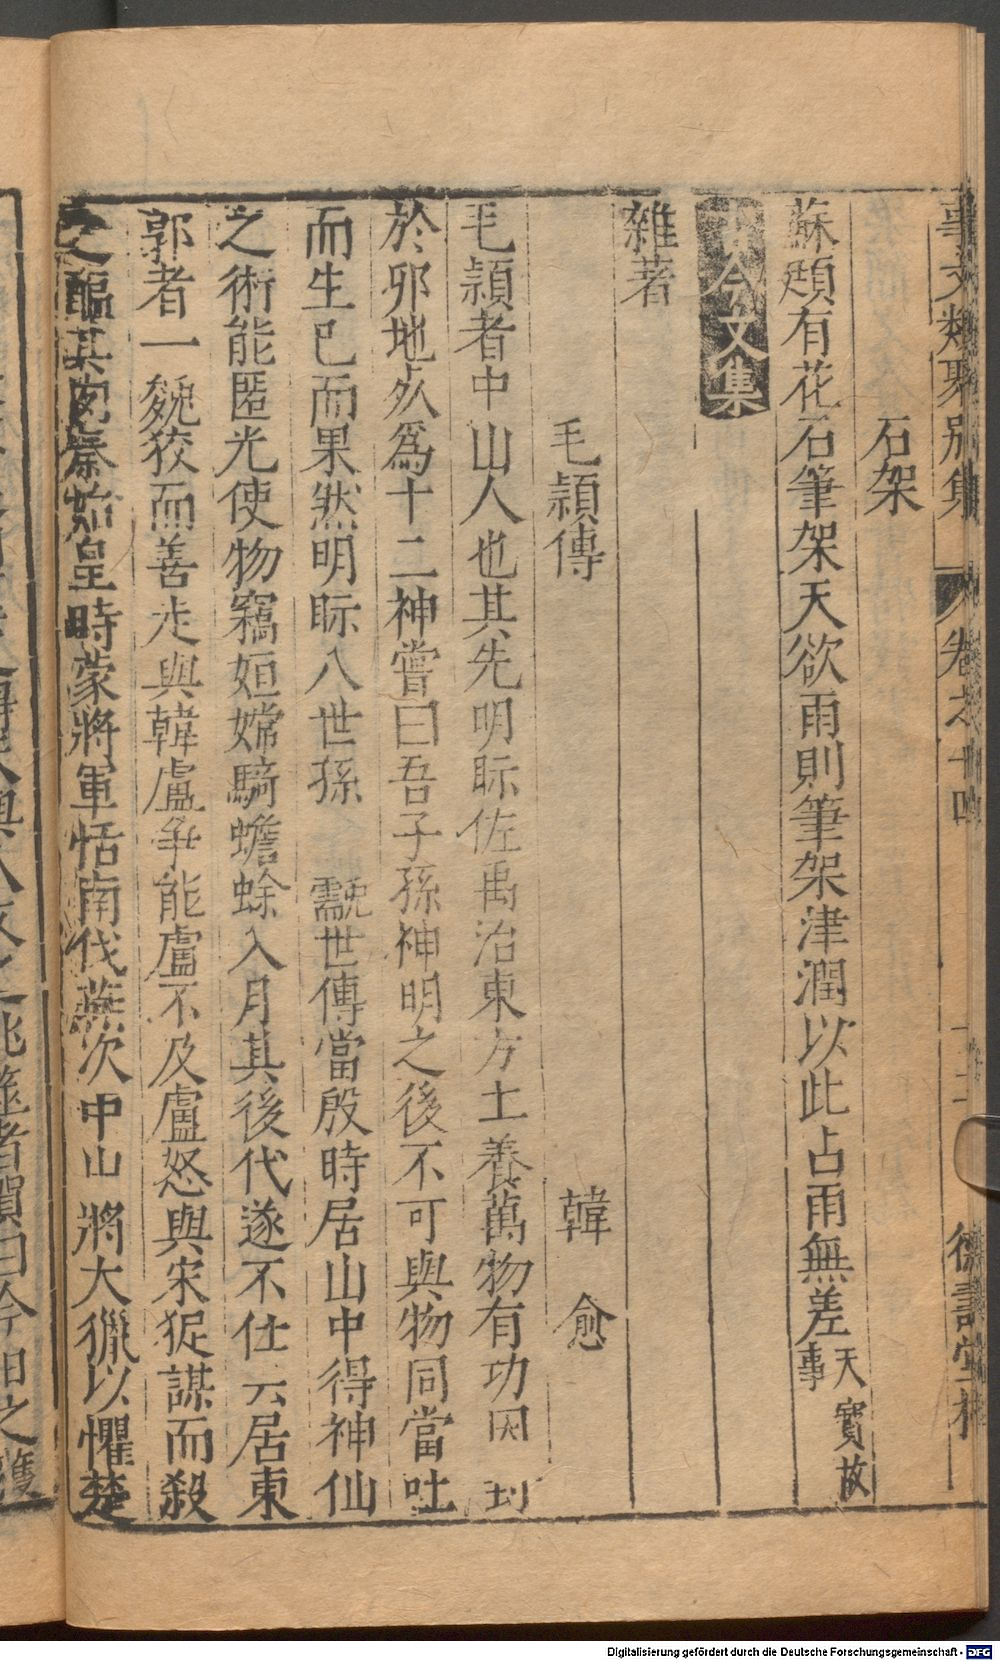 事文類聚別集 卷之十四 十二 德壽堂梓
石架
蘇頲有花石筆架天欲雨則筆架津潤以此占雨無差天寶故事
古今文集
雜著
毛穎傳 韓愈
毛穎者中山人也其先明眎佐禹治東方土養萬物有功因封
於卯地死爲十二神嘗曰吾子孫神明之後不可與物同當吐
而生已而果然明眎八世孫䨲世傳當殷時居山中得神仙
之術能匿光使物竊姮嫦騎蟾蜍入月其後代遂不仕云居東
郭者一㕙狡而善走與韓盧爭能盧不及盧怒與宋㹱謀而殺
之醢其家秦始皇時蒙將軍恬南伐燕次中山將大獵以懼楚
Digitalisierung gefördert durch die Deutsche Forschungsgemeinschaft - DFG